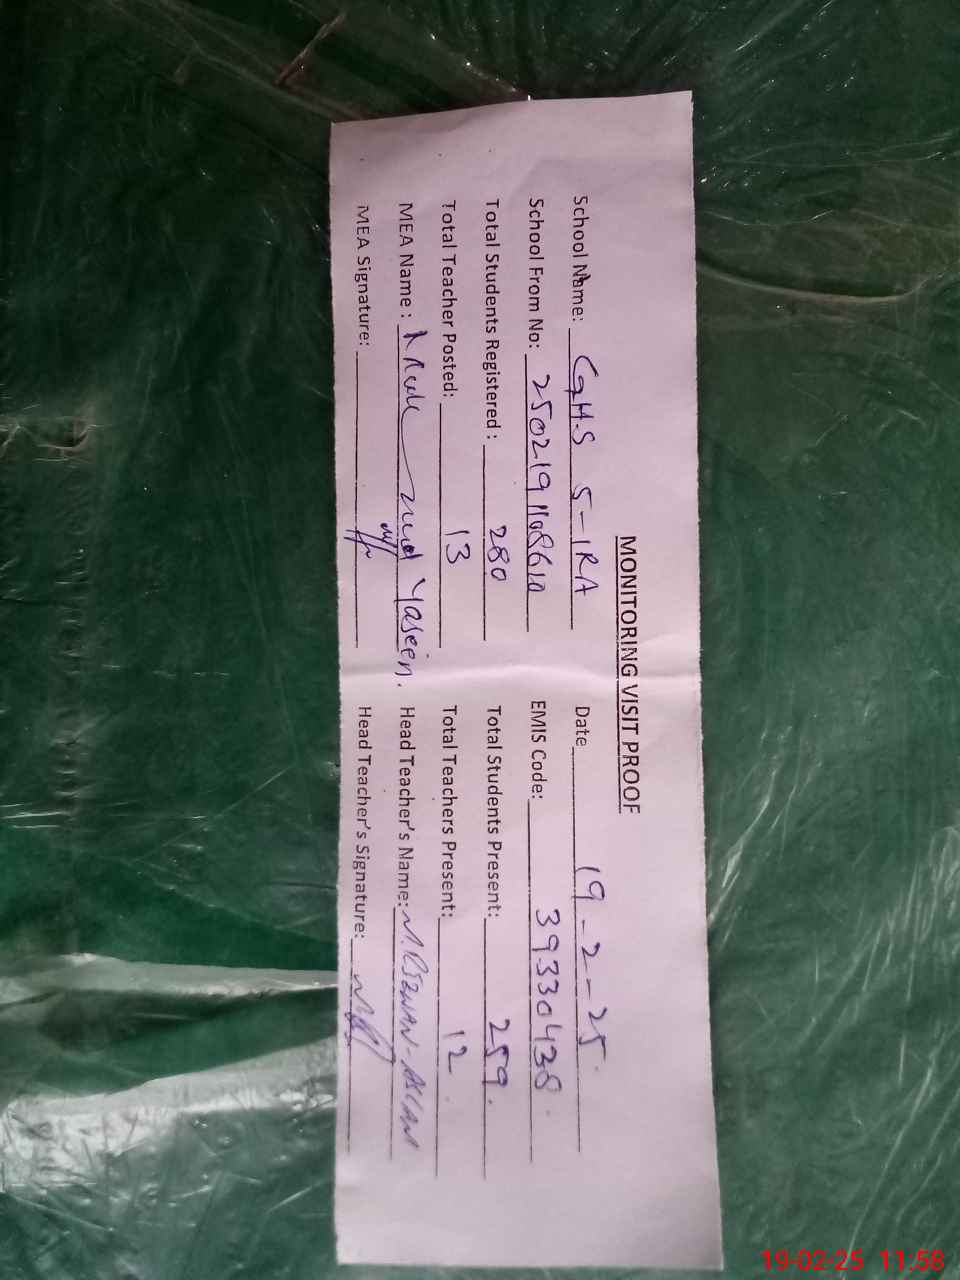 MONITORING VISIT PROOF
School Name: GHS 5-1RA Date 19-2-25.
School From No: EMIS Code: 39330438.
Total Students Registered : 280 Total Students Present: 259.
Total Teacher Posted: 13 Total Teachers Present: 12.
MEA Name : Yaseen. Head Teacher's Name: M.RIZWAN-ASLAM
MEA Signature: Head Teacher's Signature:
19-02-25 11:58